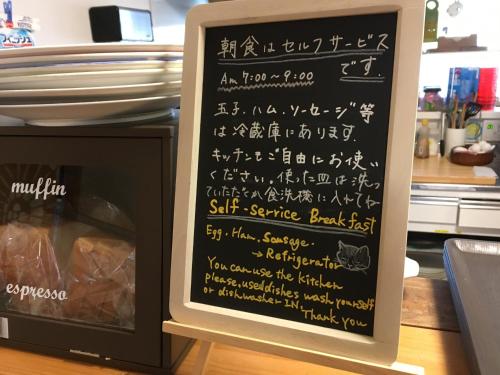 フィニッシュ
muffin
espresso
朝食はセルフサービス
です.
Am 7:00~9:00
玉子.ハム.ソーセージ等
は冷蔵庫にあります.
キッチンもご自由にお使い
ください。使った皿は洗っ
ていただくか食洗機に入れてね
Self-Service Breakfast
Egg. Ham. Sausage.
→ Refrigerator
You can use the kitchen
please, used dishes wash yourself
or dishwasher IN.
Thank you